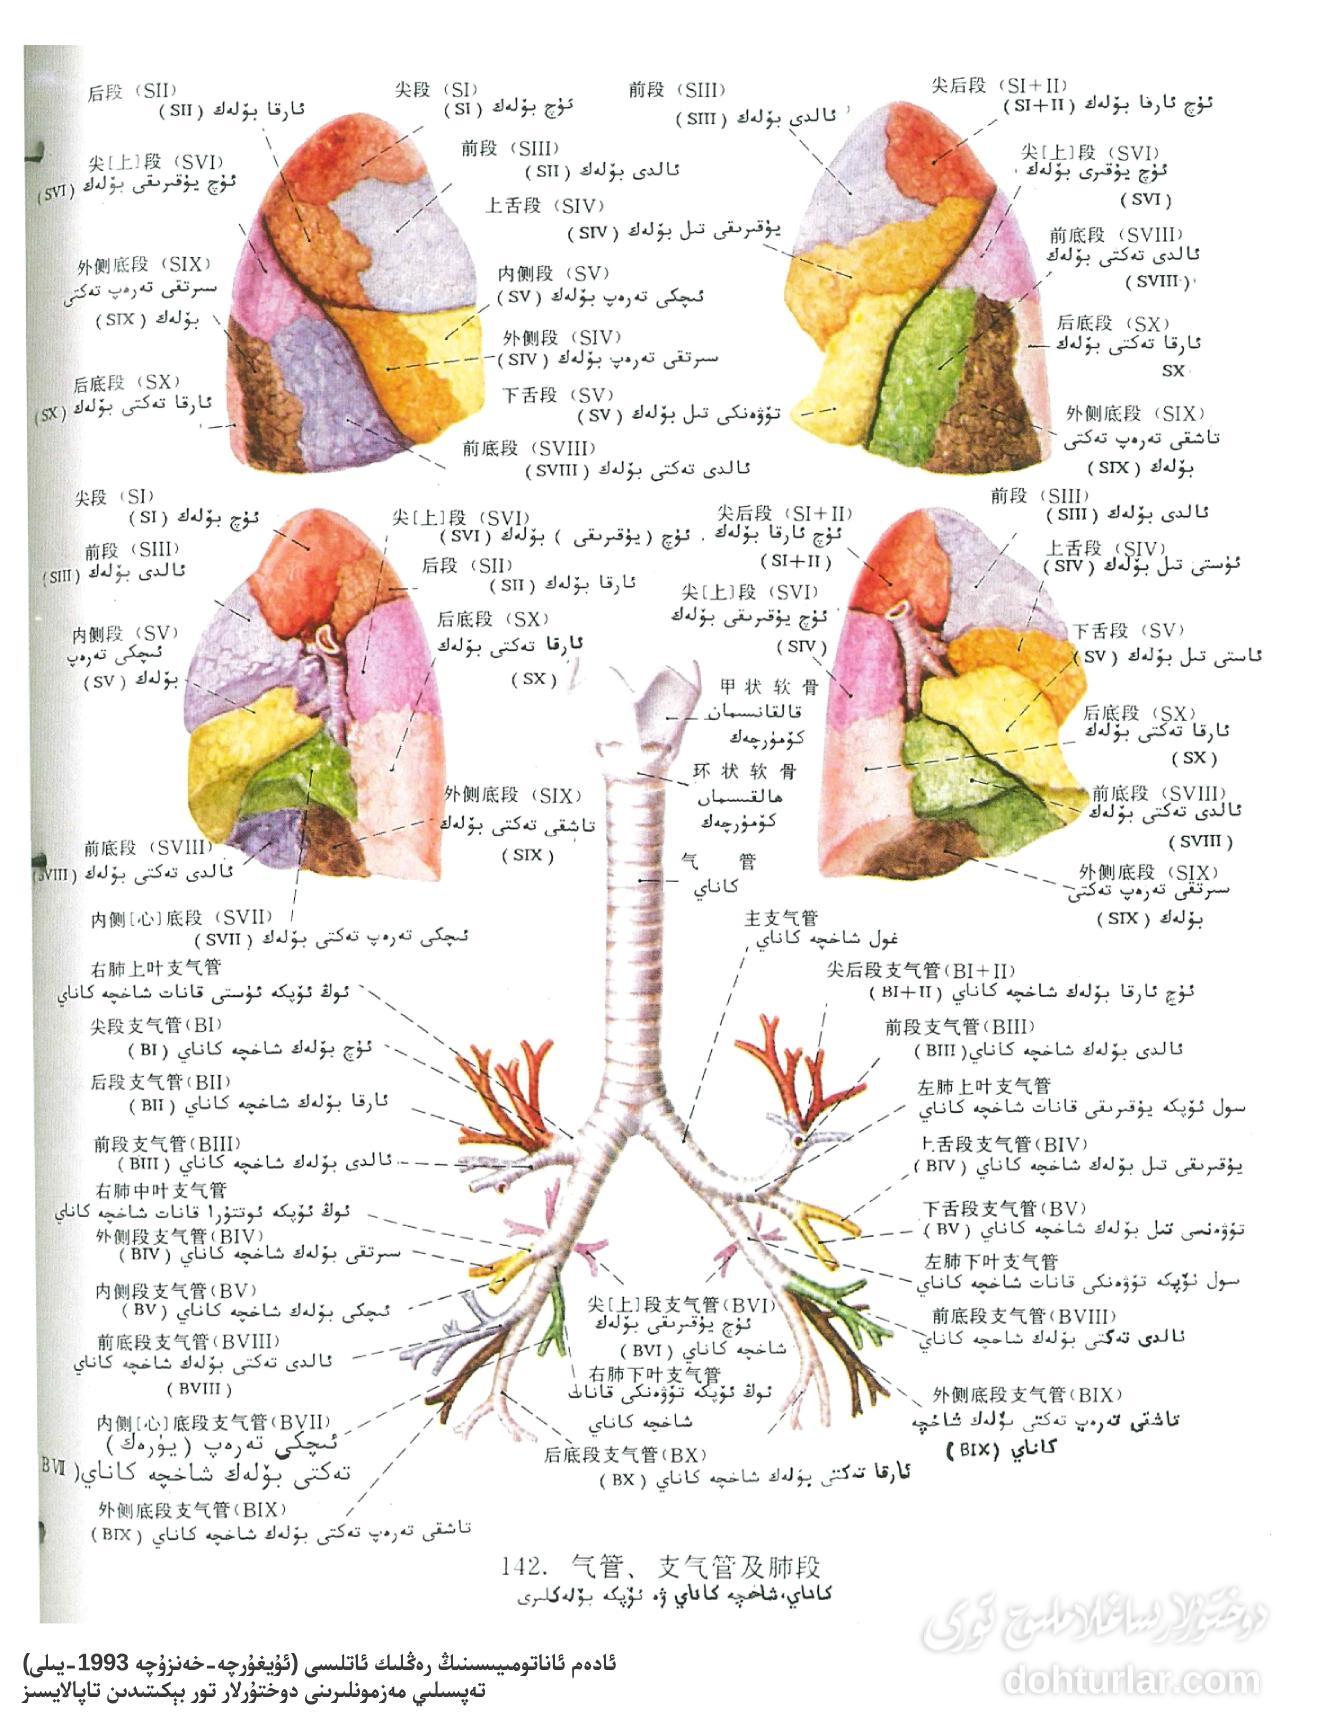 后段 (SII)
ئارقا بۆلەك ( SII )
尖段 (SI)
ئۇچ بۆلەك ( SI )
前段 (SIII)
ئالدى بۆلەك ( SIII )
尖后段 (SI+II)
ئۇچ ئارقا بۆلەك ( SI+II )
尖[上]段 (SVI)
ئۇچ يۇقىرىقى بۆلەك ( SVI )
前段 (SIII)
ئالدى بۆلەك ( SII )
尖[上]段 (SVI)
ئۇچ يۇقىرى بۆلەك
( SVI )
上舌段 (SIV)
يۇقىرىقى تىل بۆلەك ( SIV )
前底段 (SVIII)
ئالدى تەكتى بۆلەك
( SVIII )
外侧底段 (SIX)
سىرتقى تەرەپ تەكتى
بۆلەك ( SIX )
内侧段 (SV)
ئىچكى تەرەپ بۆلەك ( SV )
外侧段 (SIV)
سىرتقى تەرەپ بۆلەك ( SIV )
后底段 (SX)
ئارقا تەكتى بۆلەك
SX
后底段 (SX)
ئارقا تەكتى بۆلەك ( SX )
下舌段 (SV)
تۆۋەنكى تىل بۆلەك ( SV )
外侧底段 (SIX)
تاشقى تەرەپ تەكتى
بۆلەك ( SIX )
前底段 (SVIII)
ئالدى تەكتى بۆلەك ( SVIII )
尖段 (SI)
ئۇچ بۆلەك ( SI )
尖[上]段 (SVI)
ئۇچ ( يۇقىرىقى ) بۆلەك ( SVI )
尖后段 (SI+II)
ئۇچ ئارقا بۆلەك
( SI+II )
前段 (SIII)
ئالدى بۆلەك ( SIII )
前段 (SIII)
ئالدى بۆلەك ( SIII )
后段 (SII)
ئارقا بۆلەك ( SII )
上舌段 (SIV)
ئۈستى تىل بۆلەك ( SIV )
尖[上]段 (SVI)
ئۇچ يۇقىرىقى بۆلەك
( SIV )
内侧段 (SV)
ئىچكى تەرەپ
بۆلەك ( SV )
后底段 (SX)
ئارقا تەكتى بۆلەك
( SX )
下舌段 (SV)
ئاستى تىل بۆلەك ( SV )
甲状软骨
قالقانسىمان
كۆمۈرچەك
后底段 (SX)
ئارقا تەكتى بۆلەك
( SX )
环状软骨
ھالقىسىمان
كۆمۈرچەك
外侧底段 (SIX)
تاشقى تەكتى بۆلەك
( SIX )
前底段 (SVIII)
ئالدى تەكتى بۆلەك
( SVIII )
前底段 (SVIII)
ئالدى تەكتى بۆلەك ( SVIII )
气管
كاناي
外侧底段 (SIX)
سىرتقى تەرەپ تەكتى
بۆلەك ( SIX )
内侧[心]底段 (SVII)
ئىچكى تەرەپ تەكتى بۆلەك ( SVII )
主支气管
غول شاخچە كاناي
右肺上叶支气管
ئوڭ ئۆپكە ئۈستى قانات شاخچە كاناي
尖后段支气管(BI+II)
ئۇچ ئارقا بۆلەك شاخچە كاناي ( BI+II )
尖段支气管(BI)
ئۇچ بۆلەك شاخچە كاناي ( BI )
前段支气管(BIII)
ئالدى بۆلەك شاخچە كاناي ( BIII )
后段支气管(BII)
ئارقا بۆلەك شاخچە كاناي ( BII )
左肺上叶支气管
سول ئۆپكە يۇقىرىقى قانات شاخچە كاناي
前段支气管(BIII)
ئالدى بۆلەك شاخچە كاناي ( BIII )
上舌段支气管(BIV)
يۇقىرىقى تىل بۆلەك شاخچە كاناي ( BIV )
右肺中叶支气管
ئوڭ ئۆپكە ئوتتۇرا قانات شاخچە كاناي
下舌段支气管(BV)
تۆۋەنسى تىل بۆلەك شاخچە كاناي ( BV )
外侧段支气管(BIV)
سىرتقى بۆلەك شاخچە كاناي ( BIV )
左肺下叶支气管
سول ئۆپكە تۆۋەنكى قانات شاخچە كاناي
内侧段支气管(BV)
ئىچكى بۆلەك شاخچە كاناي ( BV )
尖[上]段支气管(BVI)
ئۇچ يۇقىرىقى بۆلەك
شاخچە كاناي ( BVI )
前底段支气管(BVIII)
ئالدى تەكتى بۆلەك شاخچە كاناي
前底段支气管(BVIII)
ئالدى تەكتى بۆلەك شاخچە كاناي
( BVIII )
右肺下叶支气管
ئوڭ ئۆپكە تۆۋەنكى قانات
شاخچە كاناي
外侧底段支气管(BIX)
تاشقى تەرەپ تەكتى بۆلەك شاخچە
كاناي ( BIX )
内侧[心]底段支气管(BVII)
ئىچكى تەرەپ ( يۈرەك )
تەكتى بۆلەك شاخچە كاناي( BVII
后底段支气管(BX)
ئارقا تەكتى بۆلەك شاخچە كاناي ( BX )
外侧底段支气管(BIX)
تاشقى تەرەپ تەكتى بۆلەك شاخچە كاناي ( BIX )
142. 气管、支气管及肺段
كاناي،شاخچە كاناي ۋە ئۆپكە بۆلەكلىرى
دوختۇرلار ساغلاملىق تورى
dohturlar.com
ئادەم ئاناتومىيىسىنىڭ رەڭلىك ئاتلىسى (ئۇيغۇرچە-خەنزۇچە 1993-يىلى)
تەپسىلىي مەزمونلىرىنى دوختۇرلار تور بېكىتىدىن تاپالايسىز